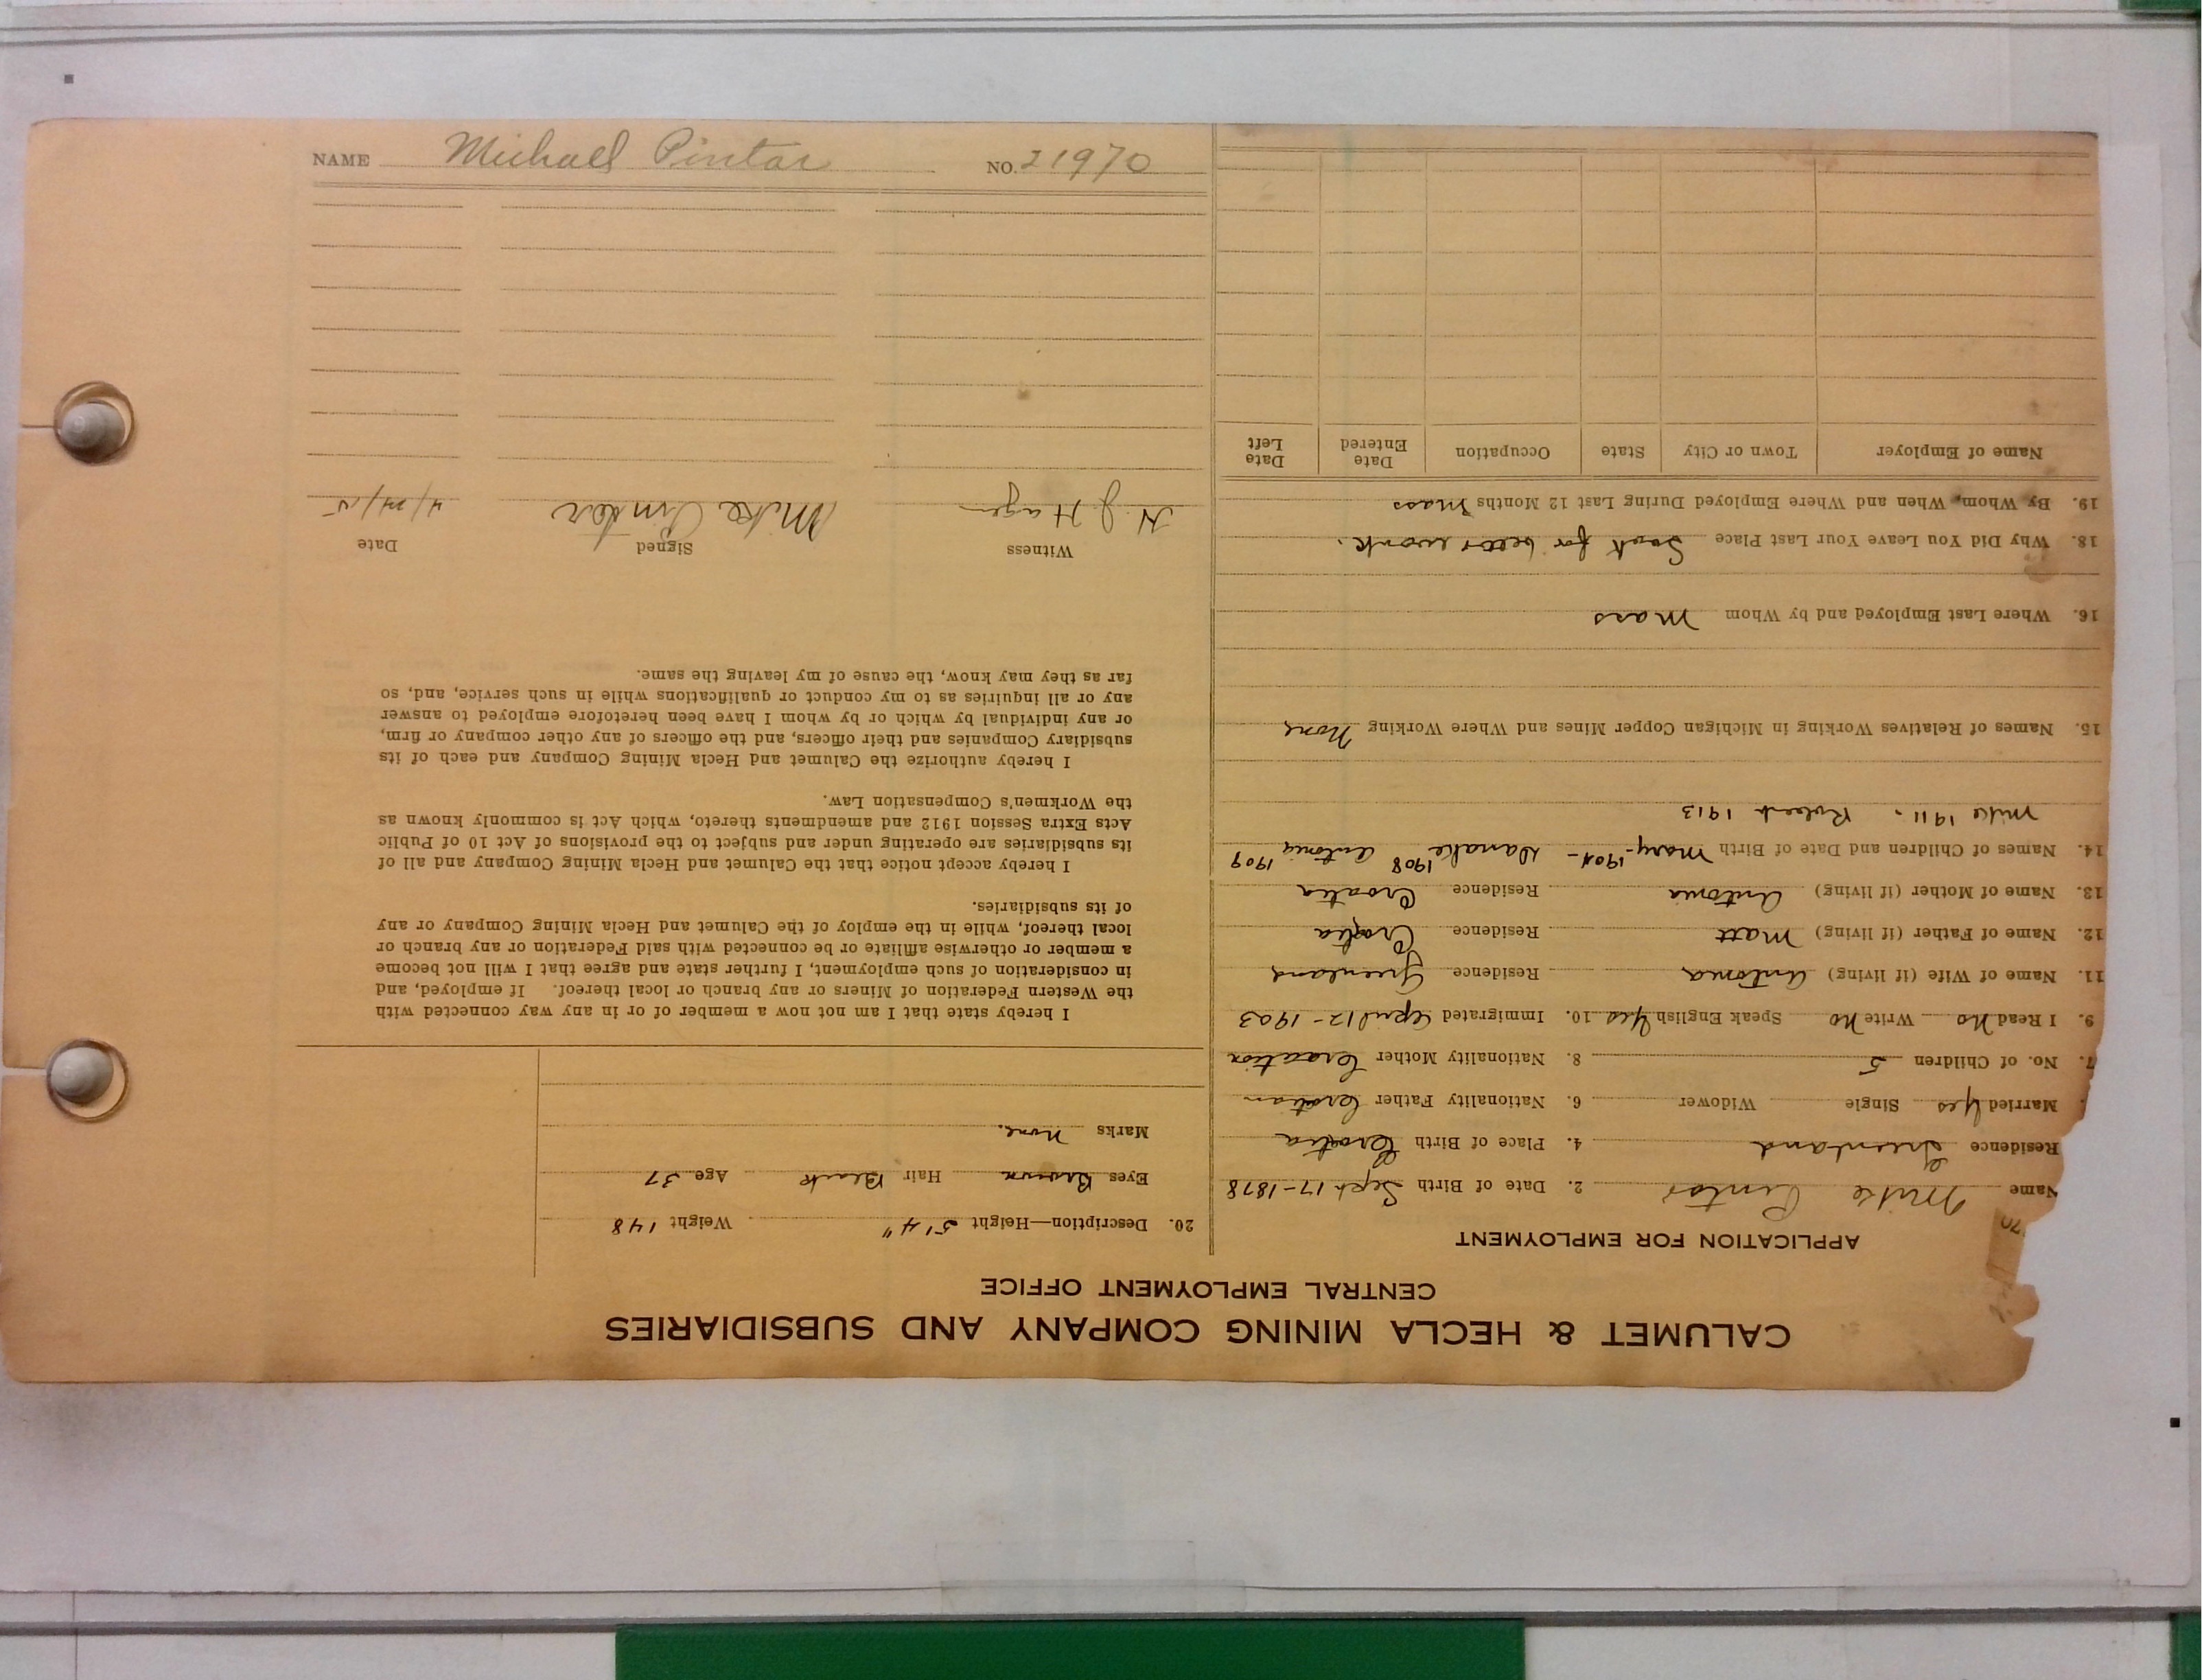 CALUMET & HECLA MINING COMPANY AND SUBSIDIARIES
CENTRAL EMPLOYMENT OFFICE
APPLICATION FOR EMPLOYMENT
70
Name Mike Pintar 2. Date of Birth Sept 17-1878
Residence Greenland 4. Place of Birth Croatia
Married Yes Single Widower 6. Nationality Father Croatian
7. No. of Children 5 8. Nationality Mother Croatian
9. I Read No Write No Speak English Yes 10. Immigrated April 12-1903
11. Name of Wife (if living) Antonia Residence Greenland
12. Name of Father (if living) Matt Residence Croatia
13. Name of Mother (if living) Antonia Residence Croatia
14. Names of Children and Date of Birth Mary- 1908 Antonia 1909
Mike 1911. Robert 1913
15. Names of Relatives Working in Michigan Copper Mines and Where Working None
16. Where Last Employed and by Whom Mass
18. Why Did You Leave Your Last Place Look for better work.
19. By Whom, When and Where Employed During Last 12 Months Mass
Name of Employer Town or City State Occupation Date Entered Date Left
20. Description—Height 5' 4" Weight 148
Eyes Brown Hair Black Age 37
Marks None.
I hereby state that I am not now a member of or in any way connected with
the Western Federation of Miners or any branch or local thereof. If employed, and
in consideration of such employment, I further state and agree that I will not become
a member or otherwise affiliate or be connected with said Federation or any branch or
local thereof, while in the employ of the Calumet and Hecla Mining Company or any
of its subsidiaries.
I hereby accept notice that the Calumet and Hecla Mining Company and all of
its subsidiaries are operating under and subject to the provisions of Act 10 of Public
Acts Extra Session 1912 and amendments thereto, which Act is commonly known as
the Workmen's Compensation Law.
I hereby authorize the Calumet and Hecla Mining Company and each of its
subsidiary Companies and their officers, and the officers of any other company or firm,
or any individual by which or by whom I have been heretofore employed to answer
any or all inquiries as to my conduct or qualifications while in such service, and, so
far as they may know, the cause of my leaving the same.
Witness Signed Date
N J Hagen Mike Pintar
NAME Michael Pintar NO. 21970